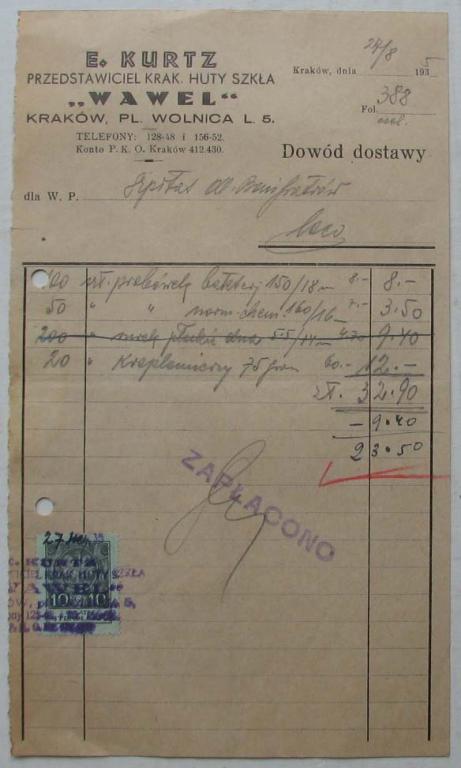 E. KURTZ
PRZEDSTAWICIEL KRAK. HUTY SZKŁA
„WAWEL“
KRAKÓW, PL. WOLNICA L. 5.
TELEFONY: 128-48 i 156-52.
Konto P. K. O. Kraków 412.430.
Kraków, dnia 24/8 1935
Fol. 388
Dowód dostawy
dla W. P. Szpital OO. Bonifratrów
loco
100 szt. probówek bakterj 150/18 8.- 8.-
50 " " norm. chem. 160/16 7.- 3.50
200 " dna 55/14 4.70 9.40
20 " Kroplomierzy 75 60.- 12.-
zł. 32.90
- 9.40
23.50
ZAPŁACONO
27 35
E. KURTZ
CIEL KRAK. HUTY SZKŁA
WAWEL“
10 10